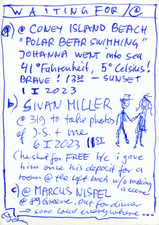 WAITING FOR /@
a) @ CONEY ISLAND BEACH
"POLAR BEAR SWIMMING"
JOHANNA WENT into SEA
41° Fahrenheit, 5° Celsius!
BRAVE! 1323 — SUNSET
1 I 2023
b) SIVAN MILLER
@ 319 to take photos
of J.S. + me
6 I 2023
Chesket for FREE
him once his deposit for a
room @ the Loft back w/o making
a scene!
c) @ MARCUS NISPEL
@ 89 Greene. Out for dinner
→ sooo cold everywhere...